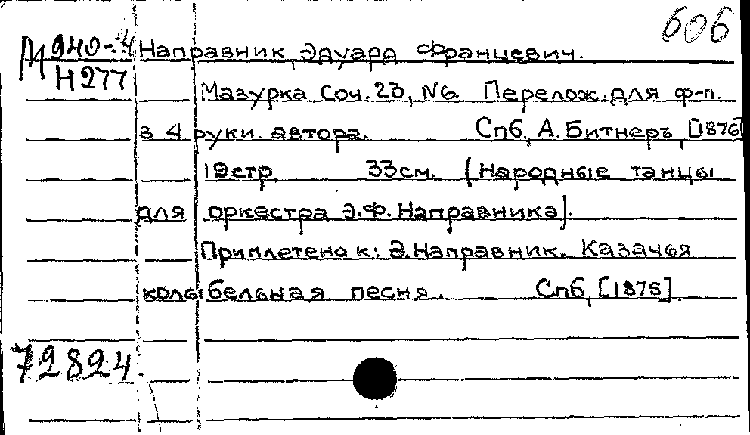 606
М 940-4 Направник, Эдуард Францевич.
Н277
Мазурка Соч. 20, №6 Перелож. для ф-п.
в 4 руки автора. Спб, А. Битнеръ, [1876]
19стр 33см. (Народные танцы
для оркестра Э.Ф. Направника].
Приплетено к: Э. Направник. Казачья
колыбельная песня. Спб, [1875]
72824.